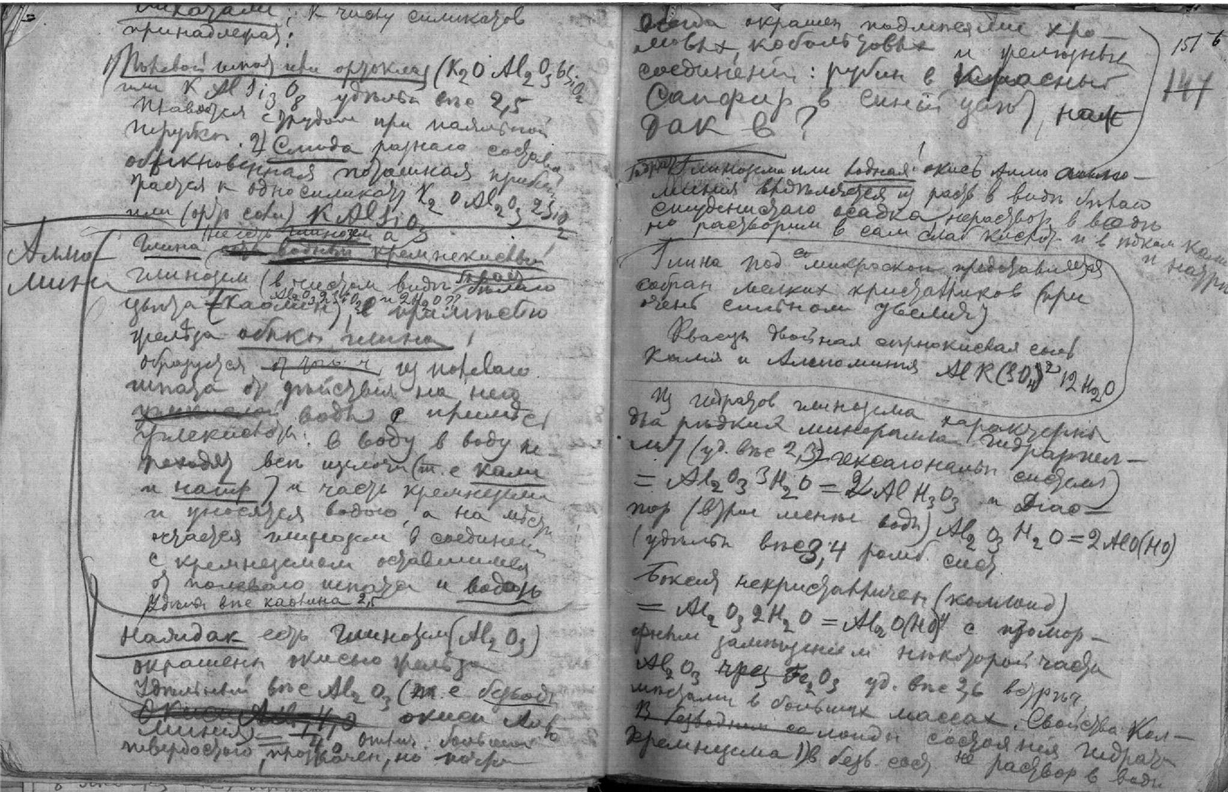 къ числу силикатовъ
принадлежатъ:
Полевой шпатъ или ортоклазъ (K2O Al2O3 6SiO2
или K AlSi3O8 удѣльн вѣс 2,5
Плавится съ трудомъ при паяльной
трубкѣ. 2) Слюда разнаго состава
обыкновенная поташная
к односиликату K2O Al2O3 2SiO2
или (орто соли) KAlSiO
Алюминій
Глина кремнекислый
глиноземъ (въ чистомъ видѣ бѣлаго
цвѣта (каолин), с примѣсью
желѣза обыкн глина
образуется из полеваго
шпата от дѣйствія на него
воды с примѣсью
углекислоты: в воду в воду пе-
реходят всѣ щелочи (т. е кали
и натр) и часть кремнезема
и уносятся водою, а на мѣстѣ
остается глинозем в соединен
с кремнеземом оставшимся
от полеваго шпата и водою
Удѣльн вѣс каолина 2,5
Наждак есть глинозем (Al2O3)
окрашенн окисью желѣза
Удѣльный вѣс Al2O3 (т. е безводн
окиси Алю
миния = 4,0 отлич. большой
твердостью, прозрачен, но почти
151 б
147
всегда окрашен подмѣсями хро-
мовых, кобальтовых и желѣзных
соединений: рубин в красный
Сапфир в синий цвѣт, наж
дак в ?
Глинозем или водная окись Алю
миния выдѣляется из раств в видѣ бѣлаго
студенистаго осадка нераствор в водѣ
но растворим в сам слаб кислот и в ѣдком кали
и натрѣ
Глина под микроскоп представляется
собран мелких кристалликов (при
очень сильном увелич)
Квасцы двойная сѣрнокислая соль
Калия и Алюминия AlK(SO4)2 12H2O
Из гидратов глинозема характерны
два рѣдкия минерала гидраргил-
лит (уд. вѣс 2,3) гексагональн системы)
= Al2O3 3H2O = 2AlH3O3 и Диас-
пор (втрое менѣе воды) Al2O3 H2O = 2AlO(HO)
(удѣльн вѣс 3,4 ромб. сист.
Боксит некристалличен (коллоид)
= Al2O3 2H2O = Al2O(HO)4 с изомор-
фным замѣщением нѣкоторой части
Al2O3 чрез Fe2O3 уд. вѣс
мѣстами в больших массах. Свойства Кол-
лоиды состояния гидрат
кремнезема 1) В безв. сост не раствор в водѣ